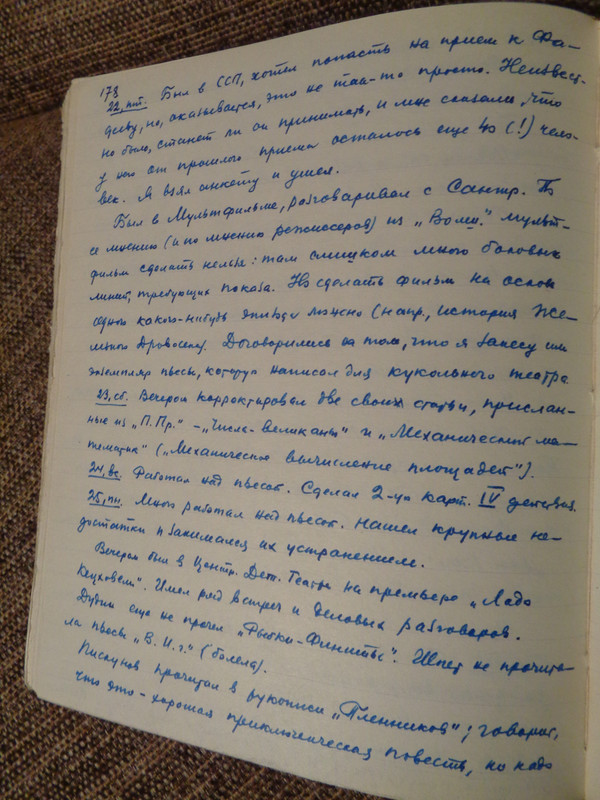 178
22, пт. Был в ССП, хотел попасть на прием к Фа-
дееву, но, оказывается, это не так-то просто. Неизвест-
но было, станет ли он принимать, и мне сказали, что
у него от прошлого приема осталось еще 40 (!) чело-
век. Я взял анкету и ушел.
Был в Мультфильме, разговаривал с Сантр. По
ее мнению (и по мнению режиссеров) из „Волш." мульт-
фильм сделать нельзя: там слишком много боковых
линий, требующих показа. Но сделать фильм на основе
одного какого-нибудь эпизода можно (напр., история Же-
лезного Дровосека). Договорились на том, что я занесу им
экземпляр пьесы, которую написал для кукольного театра.
23, сб. Вечером корректировал две своих статьи, прислан-
ные из „П. Пр." – „Числа-великаны" и „Механический ма-
тематик" („Механическое вычисление площадей").
24, вс. Работал над пьесой. Сделал 2-ую карт. IV действия.
25, пн. Много работал над пьесой. Нашел крупные не-
достатки и занимался их устранением.
Вечером был в Центр. Дет. Театре на премьере „Ладо
Кецховели". Имел ряд встреч и деловых разговоров.
Дудин еще не прочел „Рыбки-Финитьс". Шпет не прочита-
ла пьесы „В. И. г." (болела).
Пискунов прочитал в рукописи „Пленников"; говорит,
что это – хорошая приключенческая повесть, но надо